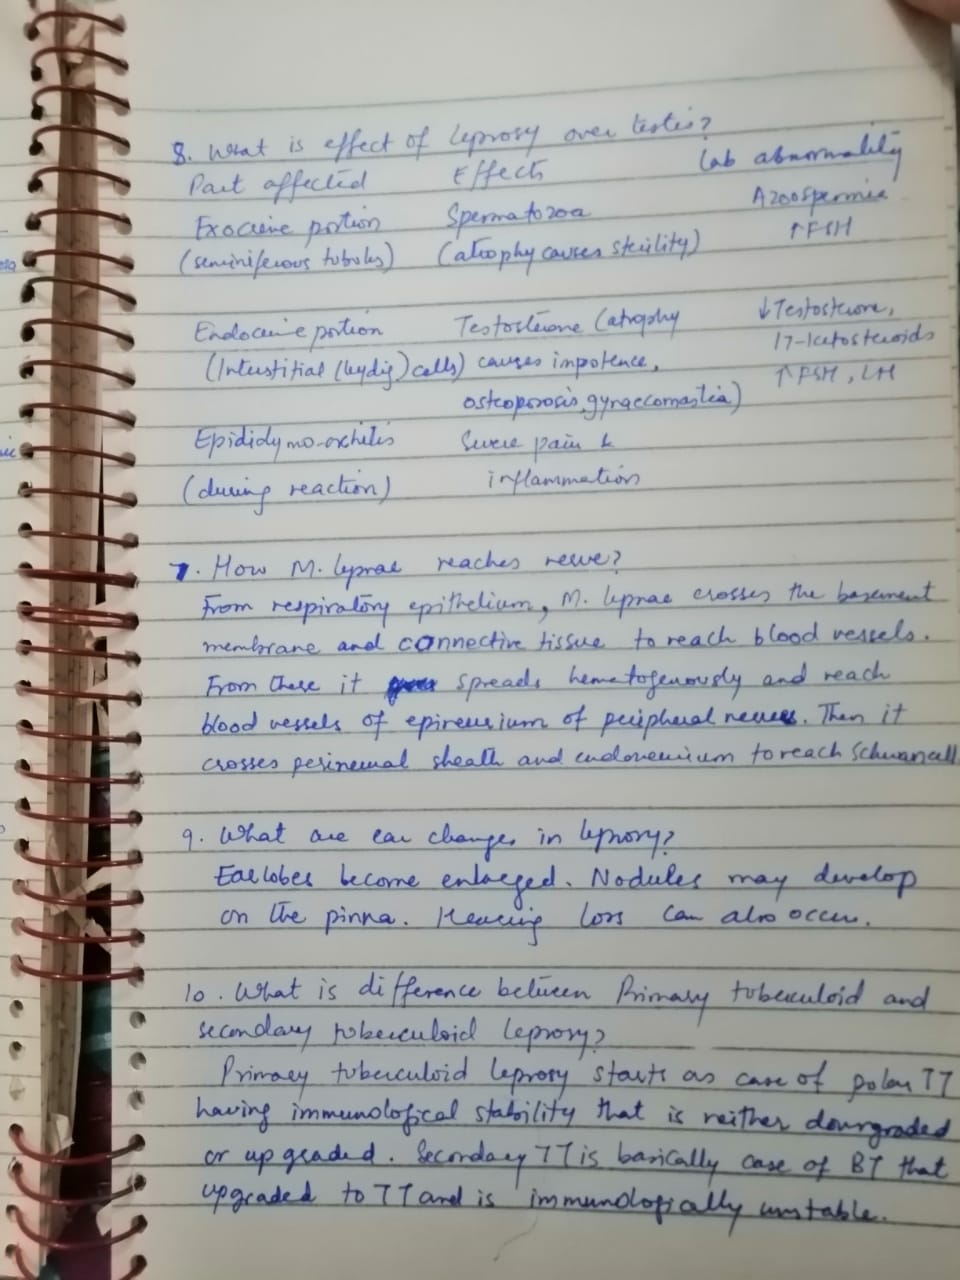 8. What is effect of leprosy over testis?
Part affected Effects Lab abnormality
Exocrine portion Spermatozoa Azoospermia
(seminiferous tubules) (atrophy causes sterility) ↑FSH
Endocrine portion Testosterone (atrophy ↓Testosterone,
(Interstitial (leydig) cells) causes impotence, 17-ketosteroids
osteoporosis, gynaecomastia) ↑FSH, LH
Epididymo-orchitis Severe pain &
(during reaction) inflammation
7. How M. leprae reaches nerve?
From respiratory epithelium, M. leprae crosses the basement
membrane and connective tissue to reach blood vessels.
From these it spreads hematogenously and reach
blood vessels of epineurium of peripheral nerves. Then it
crosses perineural sheath and endoneurium to reach Schwancell
9. What are ear changes in leprosy?
Earlobes become enlarged. Nodules may develop
on the pinna. Hearing loss can also occur.
10. What is difference between Primary tuberculoid and
secondary tuberculoid leprosy?
Primary tuberculoid leprosy starts as case of polar TT
having immunological stability that is neither downgraded
or upgraded. Secondary TT is basically case of BT that
upgraded to TT and is immunologically unstable.